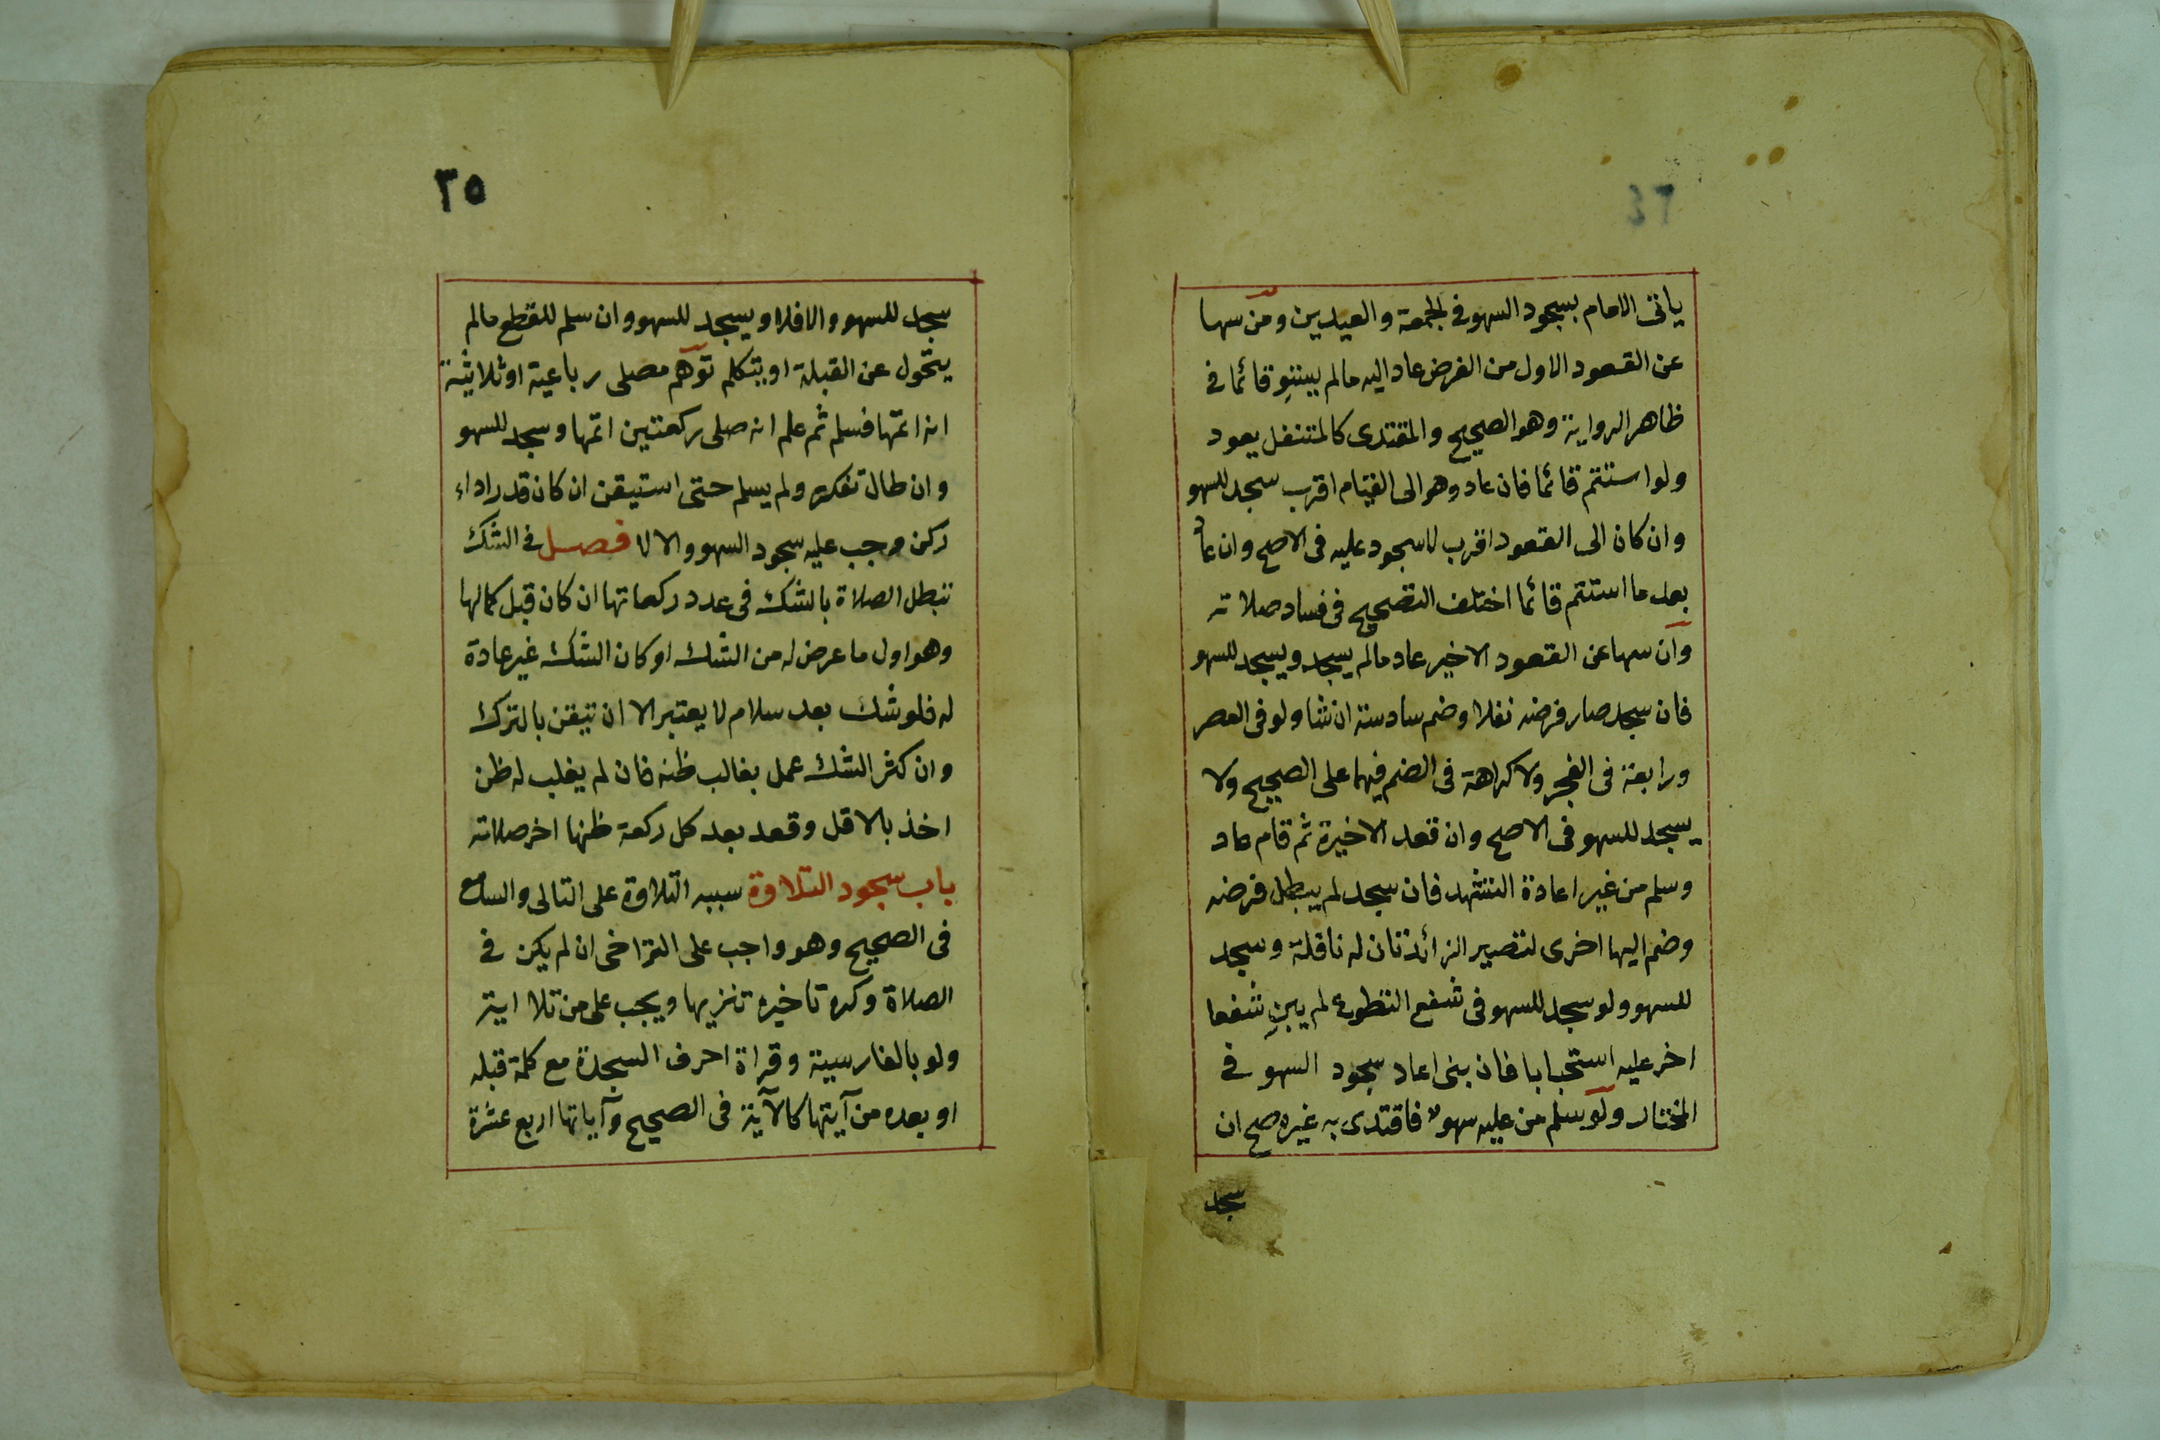 ياتى الامام بسجود السهو فى الجمعة والعيدين ومن سها
عن القعود الاول من الفرض عاد اليه مالم يستو قائما فى
ظاهر الرواية وهو الصحيح والمقتدى كالمتنفل يعود
ولو استتم قائما فان عاد وهو الى القيام اقرب سجد للسهو
وان كان الى القعود اقرب لا سجود عليه فى الاصح وان عاد
بعد ما استتم قائما اختلف التصحيح فى فساد صلاته
وان سها عن القعود الاخير عاد مالم يسجد ويسجد للسهو
فان سجد صار فرضه نفلا وضم سادسة ان شا ولو فى العصر
ورابعة فى الفجر ولا كراهة فى الضم فيهما على الصحيح ولا
يسجد للسهو فى الاصح وان قعد الاخيرة ثم قام عاد
وسلم من غير اعادة التشهد فان سجد لم يبطل فرضه
وضم اليها اخرى لتصير الزائدتان له نافلة وسجد
للسهو ولو سجد للسهو فى شفع التطوع لم يبنِ شفعا
اخر عليه استحبابا فان بنى اعاد سجود السهو فى
المختار ولو سلم من عليه سهو فاقتدى به غيره صح ان
سجد
٣٥
سجد للسهو والا فلا ويسجد للسهو وان سلم للقطع مالم
يتحول عن القبلة او يتكلم توهم مصلى رباعية او ثلاثية
انه اتمها فسلم ثم علم انه صلى ركعتين اتمها وسجد للسهو
وان طال تفكره ولم يسلم حتى استيقن ان كان قدر اداء
ركن وجب عليه سجود السهو والا لا فصل فى الشك
تبطل الصلاة بالشك فى عدد ركعاتها ان كان قبل كمالها
وهو اول ما عرض له من الشك او كان الشك غير عادة
له فلو شك بعد سلام لا يعتبر الا ان تيقن بالترك
وان كثر الشك عمل بغالب ظنه فان لم يغلب له ظن
اخذ بالاقل وقعد بعد كل ركعة ظنها اخر صلاته
باب سجود التلاوة سببه التلاوة على التالى والسامع
فى الصحيح وهو واجب على التراخى ان لم يكن فى
الصلاة وكره تاخيره تنزيها ويجب على من تلا اية
ولو بالفارسية وقراة احرف السجدة مع كلمة قبله
او بعده من آيتها كالآية فى الصحيح وآياتها اربع عشرة